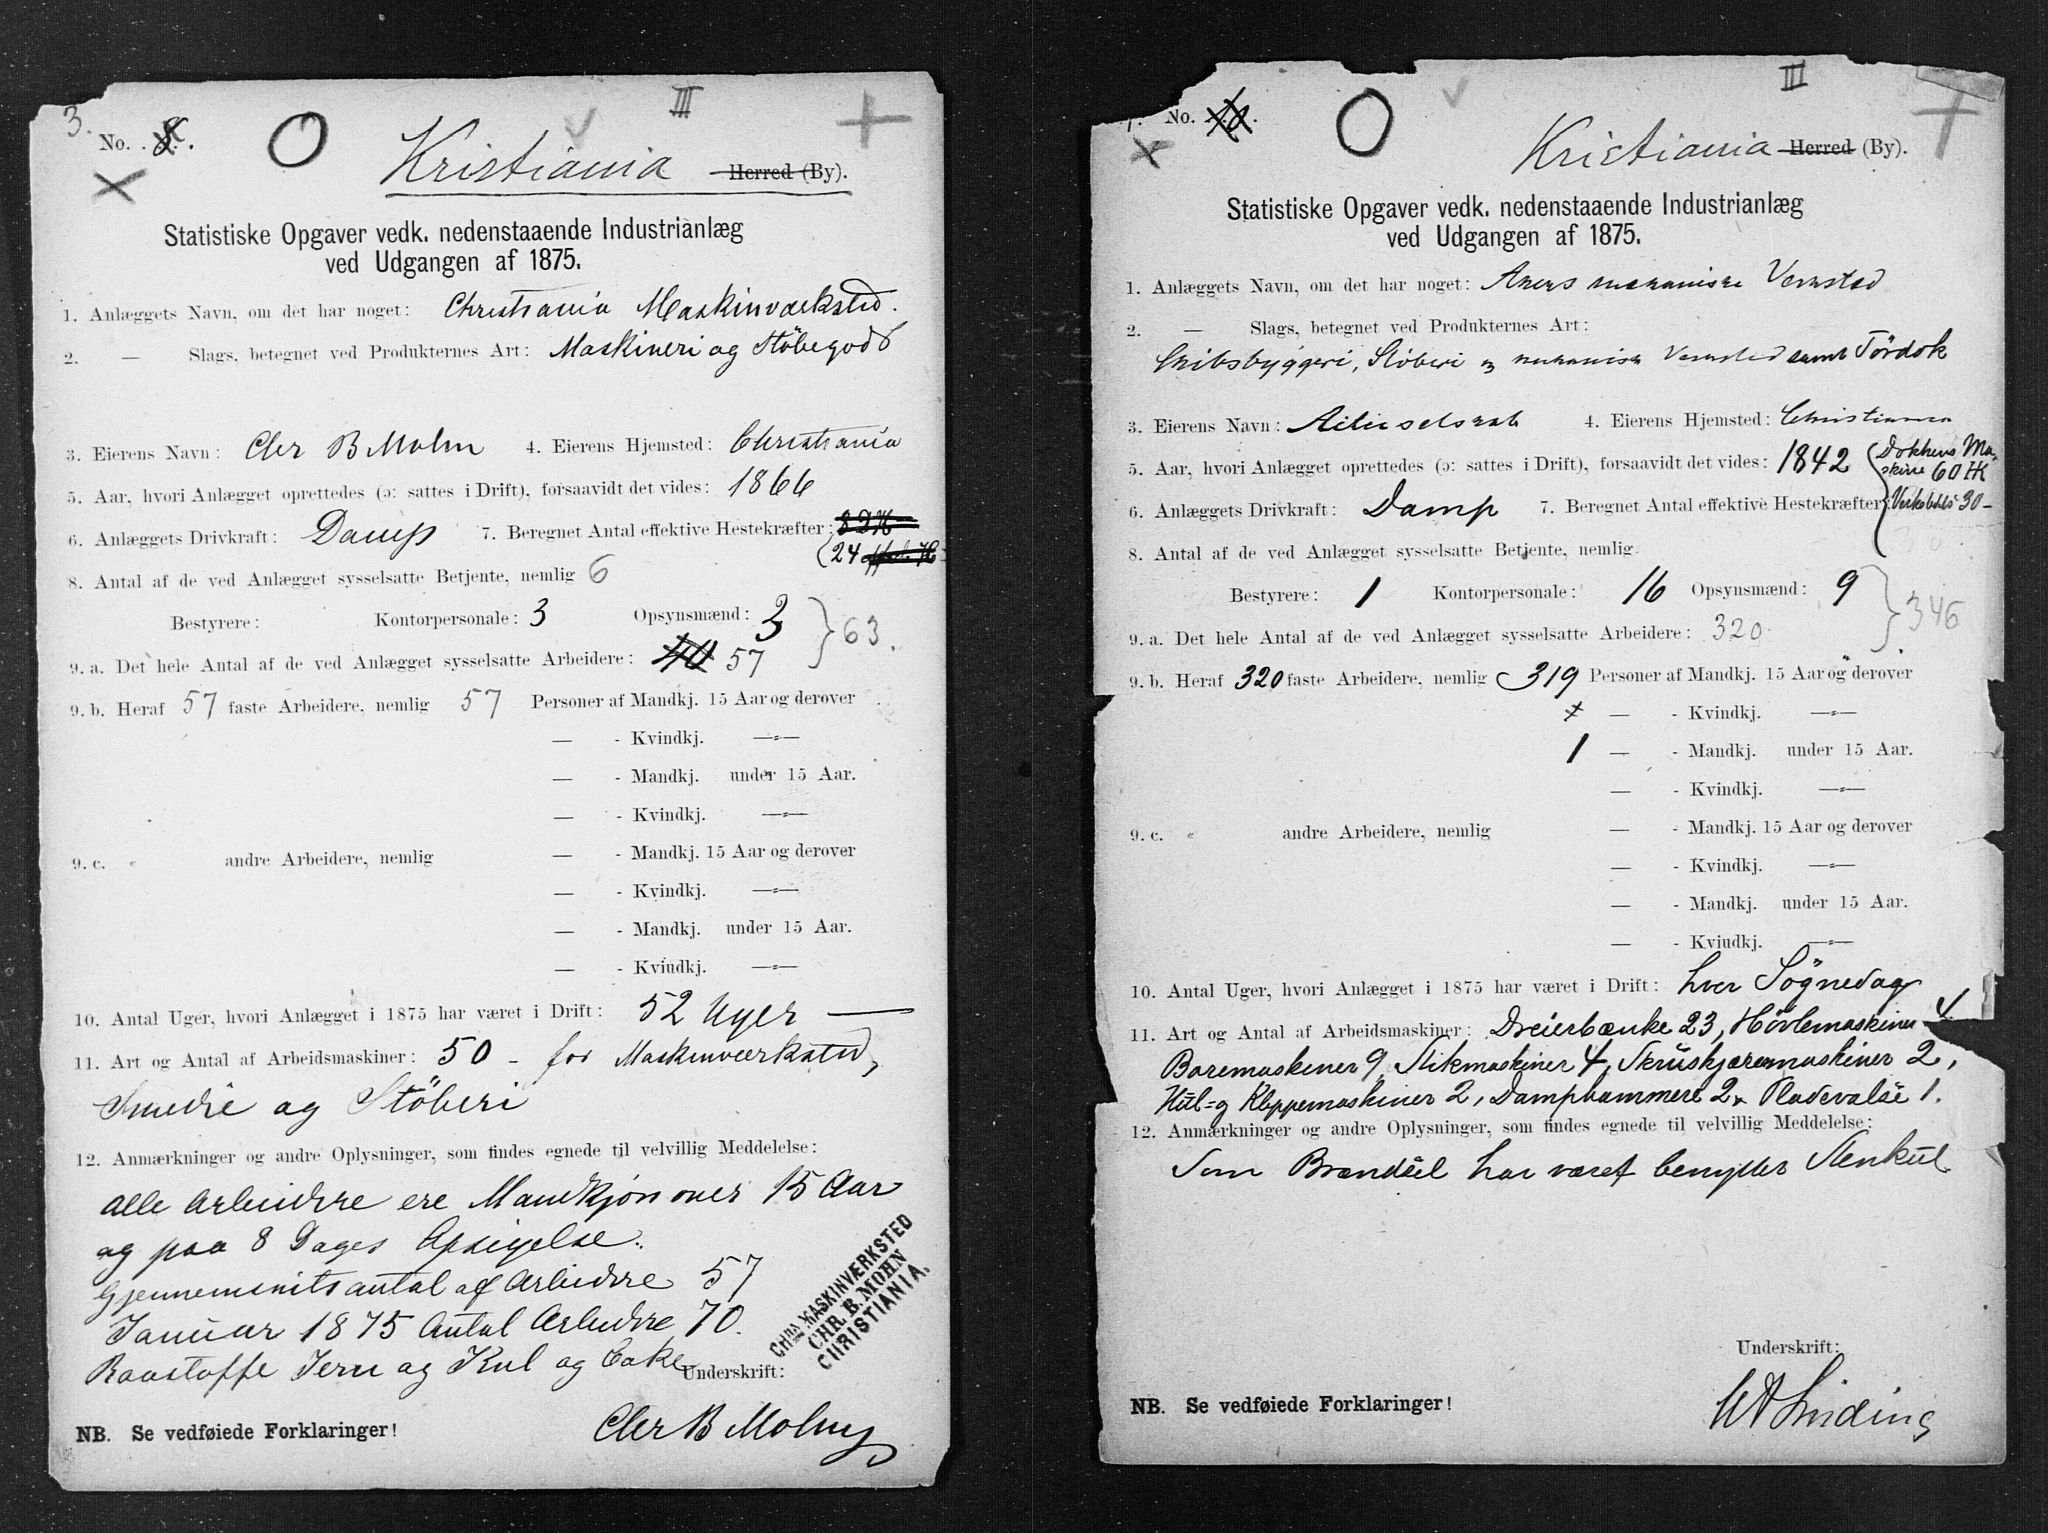 3. No. 8. III
Kristiania Herred (By).
Statistiske Opgaver vedk. nedenstaaende Industrianlæg
ved Udgangen af 1875.
1. Anlæggets Navn, om det har noget: Christiania Maskinværksted.
2. — Slags, betegnet ved Produkternes Art: Maskineri og Stöbegods
3. Eierens Navn: Chr B Mohn 4. Eierens Hjemsted: Christiania
5. Aar, hvori Anlægget oprettedes (ɔ: sattes i Drift), forsaavidt det vides: 1866
6. Anlæggets Drivkraft: Damp 7. Beregnet Antal effektive Hestekræfter: 8 DH
(24
8. Antal af de ved Anlægget sysselsatte Betjente, nemlig 6
Bestyrere: Kontorpersonale: 3 Opsynsmænd: 3 } 63.
9. a. Det hele Antal af de ved Anlægget sysselsatte Arbeidere: 40 57
9. b. Heraf 57 faste Arbeidere, nemlig 57 Personer af Mandkj. 15 Aar og derover
— - Kvindkj. —»—
— - Mandkj. under 15 Aar.
— - Kvindkj. —»—
9. c. « andre Arbeidere, nemlig — - Mandkj. 15 Aar og derover
— - Kvindkj. —»—
— - Mandkj. under 15 Aar.
— - Kvindkj. —»—
10. Antal Uger, hvori Anlægget i 1875 har været i Drift: 52 Uger —
11. Art og Antal af Arbeidsmaskiner: 50 - for Maskinværksted,
Smedie og Stöberi
12. Anmærkninger og andre Oplysninger, som findes egnede til velvillig Meddelelse:
Alle Arbeidere ere Mandkjön over 15 Aar
og paa 8 Dages Opsigelse.
Gjennemsnitsantal af Arbeidere 57
Januar 1875 Antal Arbeidere 70.
Raastoffe Jern og Kul og Coke
CHRA MASKINVÆRKSTED
CHR. B. MOHN
CHRISTIANIA.
Underskrift:
Chr B Mohn
NB. Se vedføiede Forklaringer!
No. III
Kristiania Herred (By).
Statistiske Opgaver vedk. nedenstaaende Industrianlæg
ved Udgangen af 1875.
1. Anlæggets Navn, om det har noget: Akers mekaniske Verksted
2. — Slags, betegnet ved Produkternes Art:
Skibsbyggeri, Stöberi og mekanisk Verksted samt Tördok
3. Eierens Navn: Actieselskab 4. Eierens Hjemsted: Christiania
5. Aar, hvori Anlægget oprettedes (ɔ: sattes i Drift), forsaavidt det vides: 1842 (Dokkens Ma-
skine 60 HK
6. Anlæggets Drivkraft: Damp 7. Beregnet Antal effektive Hestekræfter: 30 -
8. Antal af de ved Anlægget sysselsatte Betjente, nemlig
Bestyrere: 1 Kontorpersonale: 16 Opsynsmænd: 9 } 346
9. a. Det hele Antal af de ved Anlægget sysselsatte Arbeidere: 320
9. b. Heraf 320 faste Arbeidere, nemlig 319 Personer af Mandkj. 15 Aar og derover
— - Kvindkj. —»—
1 — - Mandkj. under 15 Aar.
— - Kvindkj. —»—
9. c. « andre Arbeidere, nemlig — - Mandkj. 15 Aar og derover
— - Kvindkj. —»—
— - Mandkj. under 15 Aar.
— - Kvindkj. —»—
10. Antal Uger, hvori Anlægget i 1875 har været i Drift: hver Sögnedag
11. Art og Antal af Arbeidsmaskiner: Dreierbænke 23, Hövlemaskiner 4
Boremaskiner 9, Stikmaskiner 4, Skrueskjæremaskiner 2,
Hul= og Klippemaskiner 2, Damphammere 2, Pladevalse 1.
12. Anmærkninger og andre Oplysninger, som findes egnede til velvillig Meddelelse:
Som Brændsel har været benyttet Stenkul
Underskrift:
Linding
NB. Se vedføiede Forklaringer!